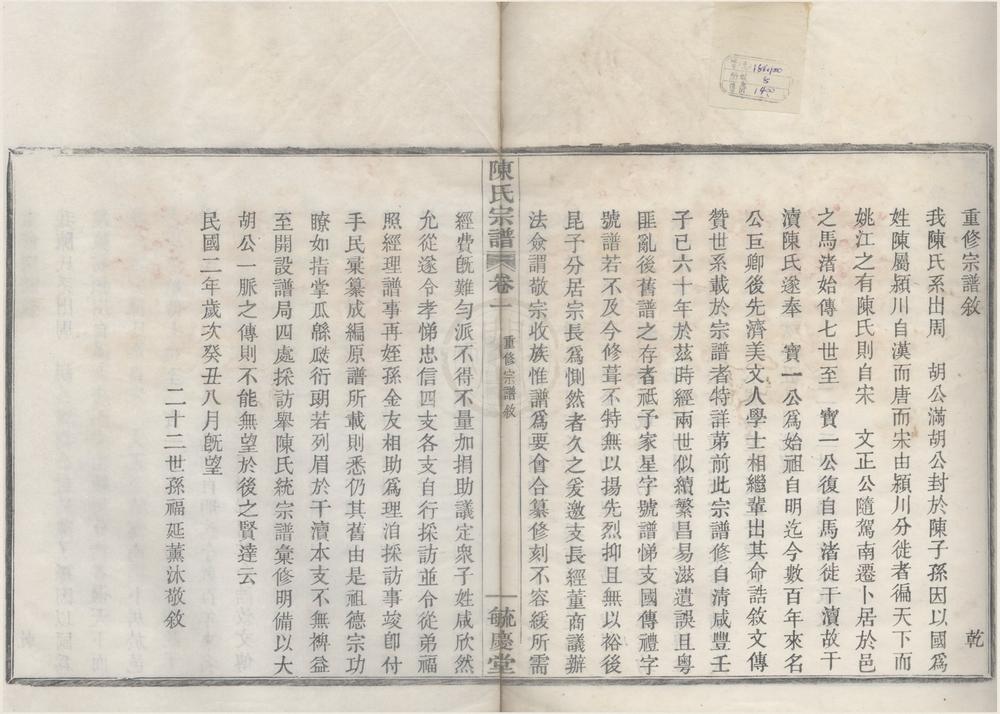 重修宗譜敘 乾
我陳氏系出周 胡公滿胡公封於陳子孫因以國爲
姓陳屬潁川自漢而唐而宋由潁川分徙者徧天下而
姚江之有陳氏則自宋 文正公隨駕南遷卜居於邑
之馬渚始傳七世至 寶一公復自馬渚徙干瀆故干
瀆陳氏遂奉 寶一公爲始祖自明迄今數百年來名
公巨卿後先濟美文人學士相繼輩出其命誥敘文傳
贊世系載於宗譜者特詳苐前此宗譜修自清咸豐壬
子已六十年於茲時經兩世似續繁昌易滋遺誤且粵
匪亂後舊譜之存者祗子家星字號譜悌支國傳禮字
號譜若不及今修葺不特無以揚先烈抑且無以裕後
昆子分居宗長爲惻然者久之爰邀支長經董商議辦
法僉謂敬宗收族惟譜爲要會合纂修刻不容緩所需
陳氏宗譜 卷一 重修宗譜敘 毓慶堂
經費既難勻派不得不量加捐助議定衆子姓咸欣然
允從遂令孝悌忠信四支各自行採訪並令從弟福
照經理譜事再姪孫金友相助爲理洎採訪事竣卽付
手民彙纂成編原譜所載則悉仍其舊由是祖德宗功
瞭如指掌瓜緜瓞衍朗若列眉於干瀆本支不無裨益
至開設譜局四處採訪舉陳氏統宗譜彙修明備以大
胡公一脈之傳則不能無望於後之賢達云
民國二年歲次癸丑八月旣望
二十二世孫福延薰沐敬敘